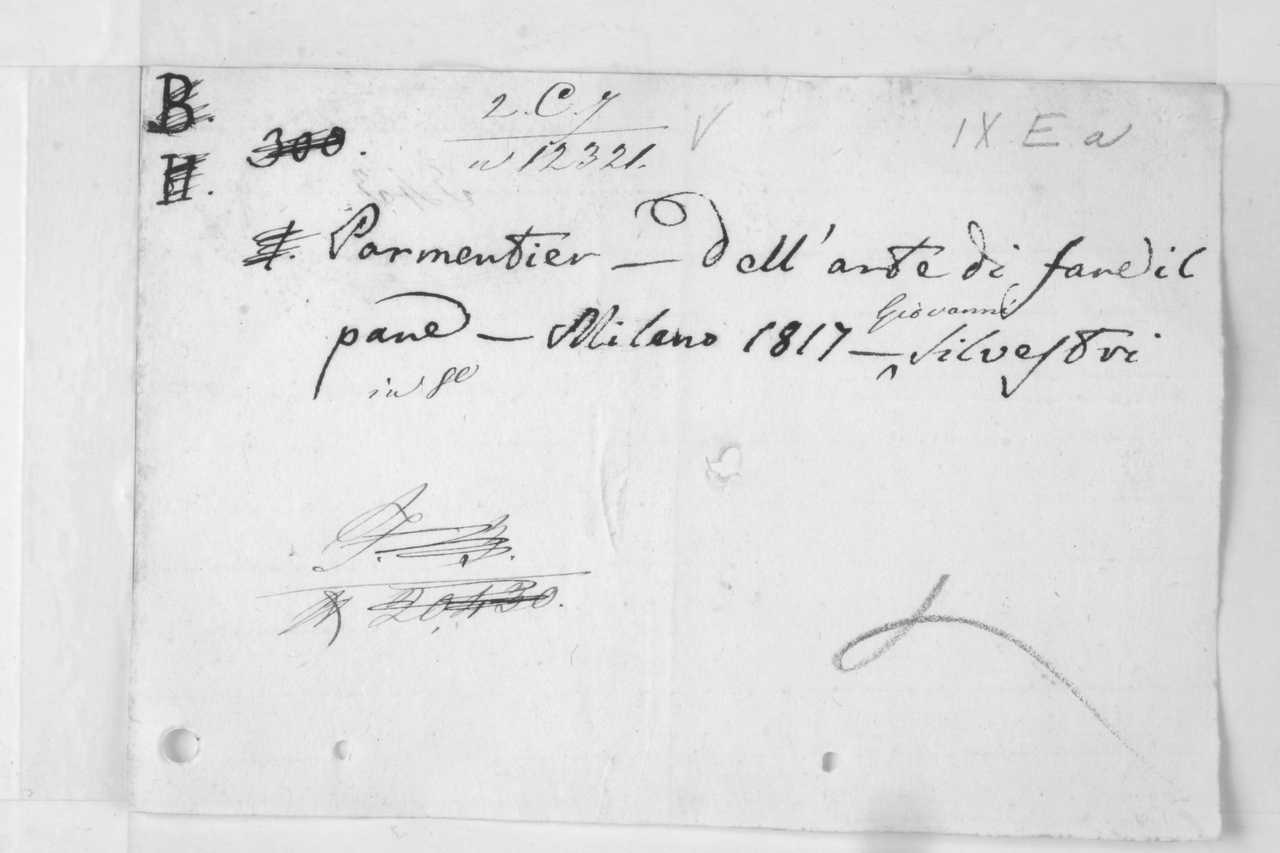 B.
H.
300.
2. C. 7
12321.
V
IX E a
Parmentier — dell'arte di fare il
pane — Milano 1817 — Giovanni Silvestri
in 8º
20430.